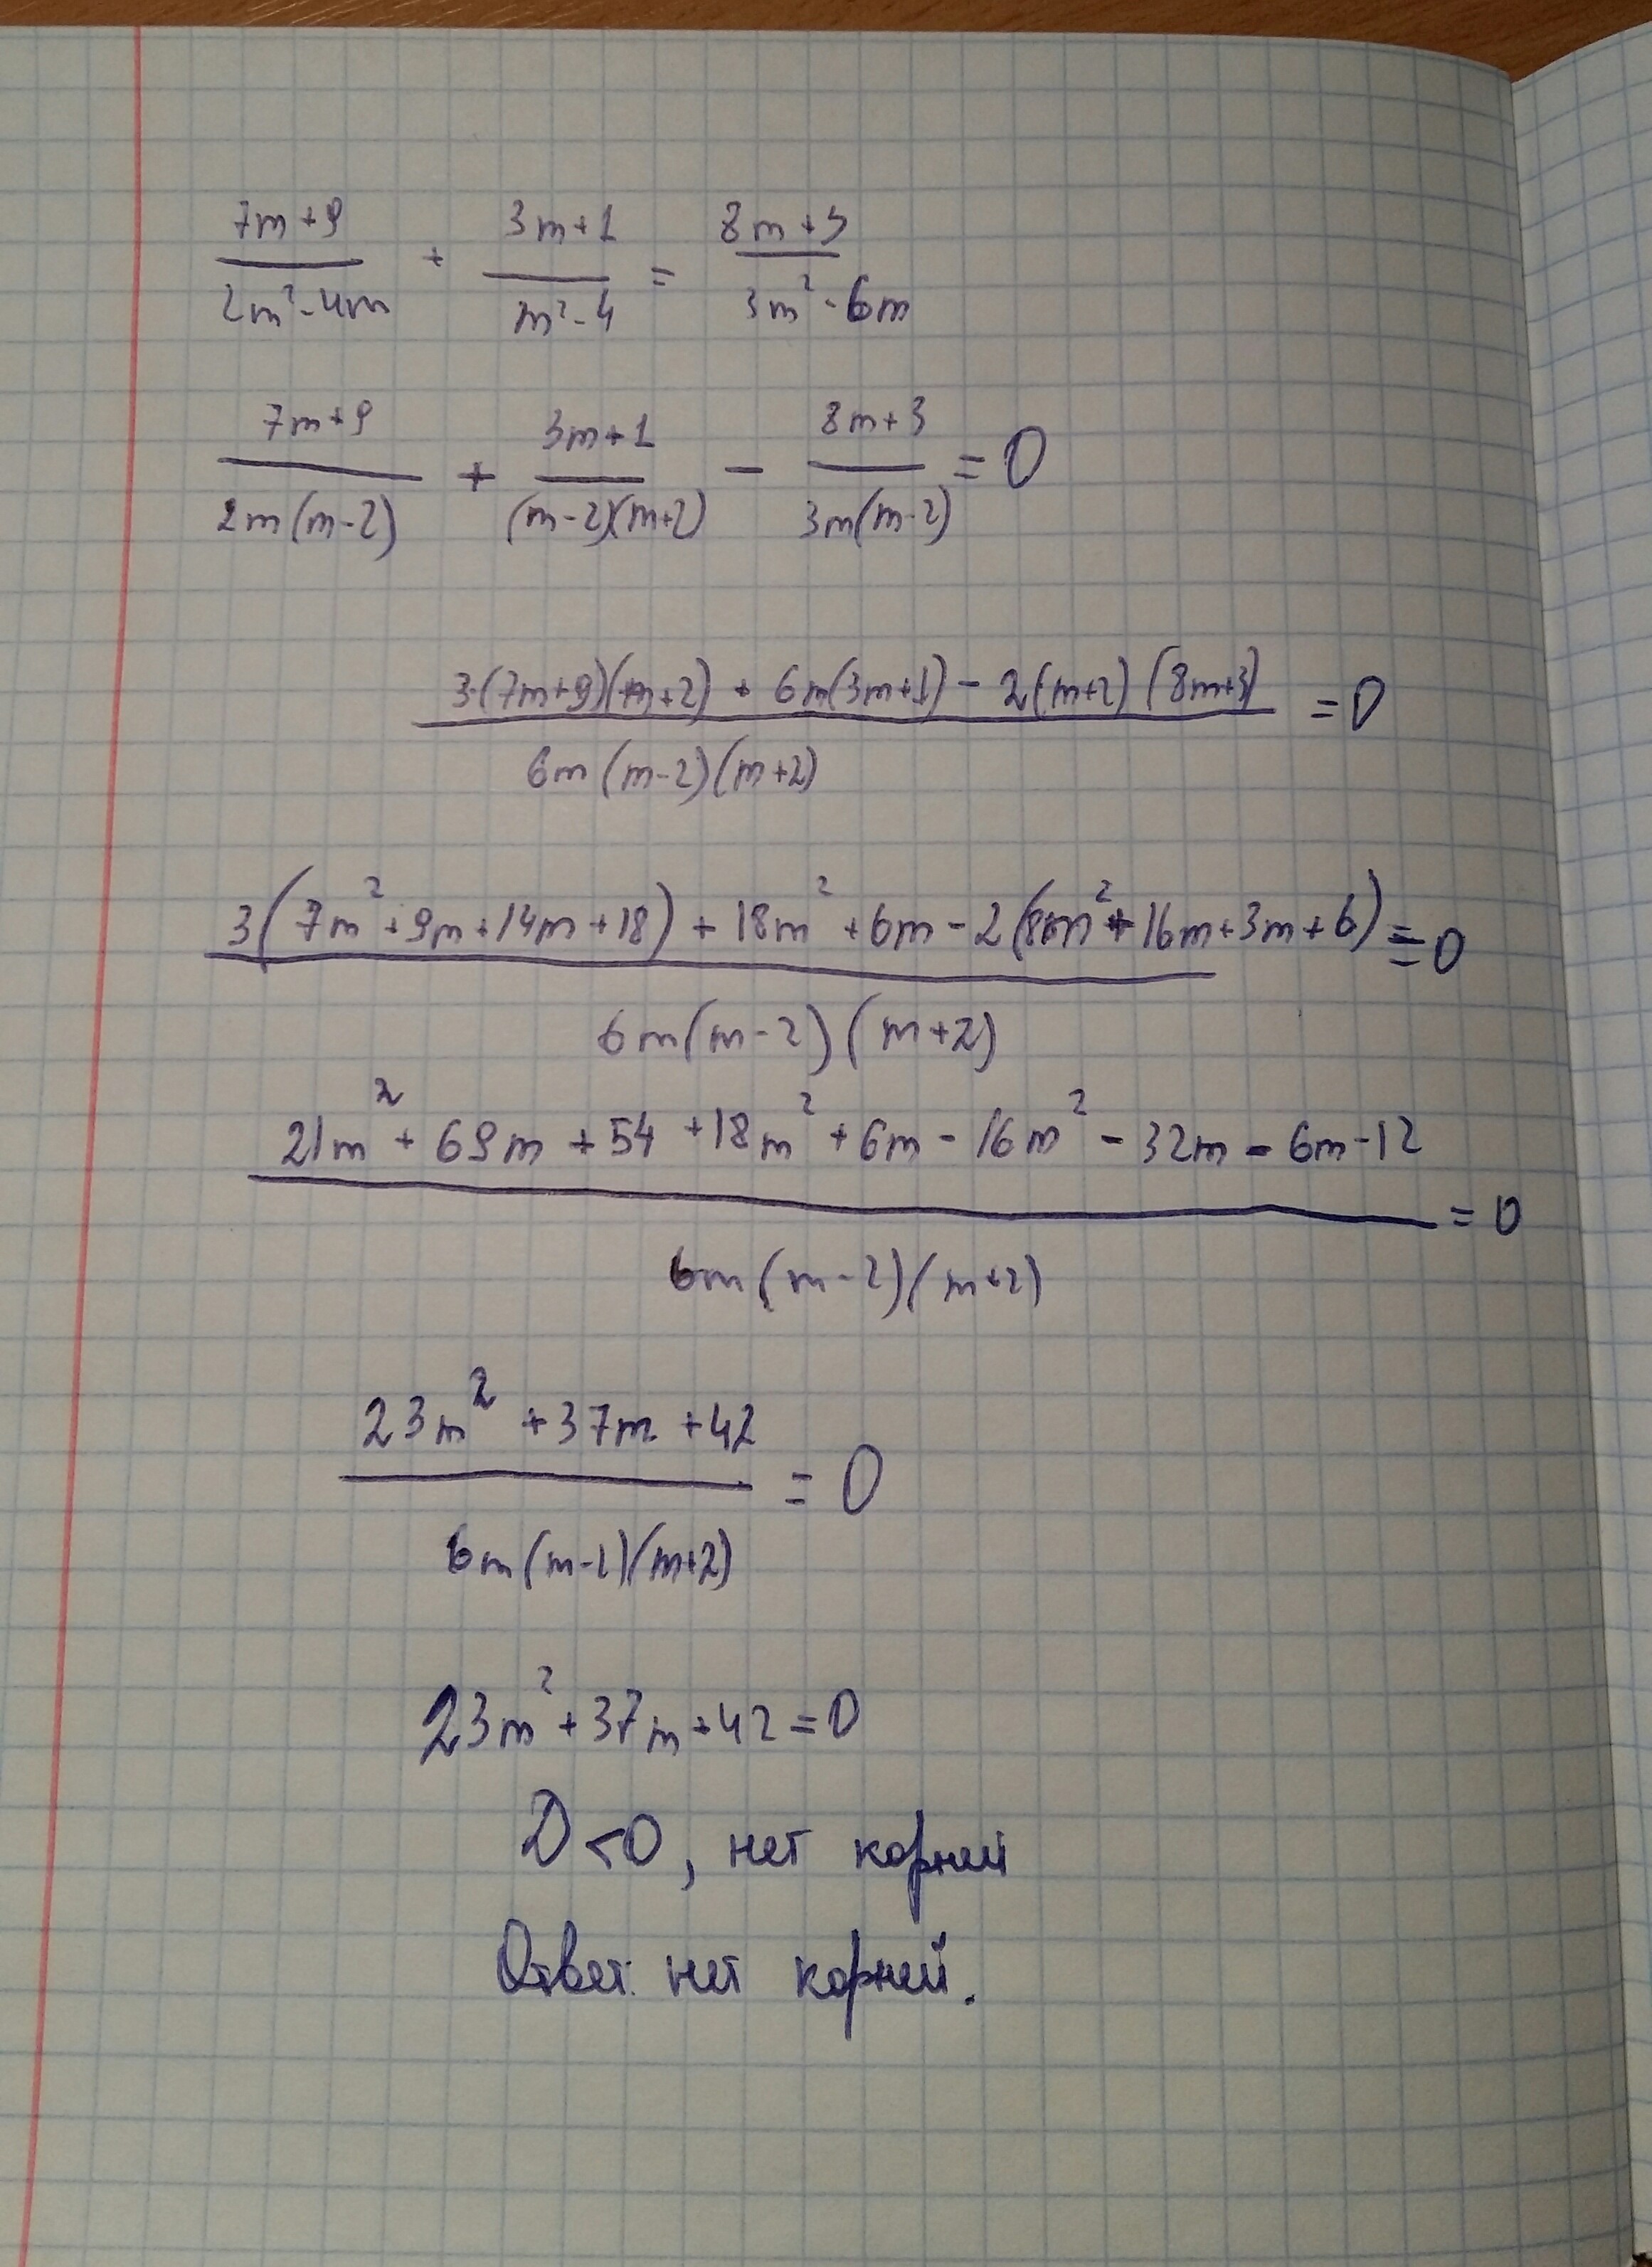 (7m+9)/(2m²-4m) + (3m+1)/(m²-4) = (8m+3)/(3m²-6m)
(7m+9)/(2m(m-2)) + (3m+1)/((m-2)(m+2)) - (8m+3)/(3m(m-2)) = 0
(3·(7m+9)(m+2) + 6m(3m+1) - 2(m+2)(8m+3))/(6m(m-2)(m+2)) = 0
(3(7m²+9m+14m+18) + 18m²+6m-2(8m²+16m+3m+6))/(6m(m-2)(m+2)) = 0
(21m²+69m+54+18m²+6m-16m²-32m-6m-12)/(6m(m-2)(m+2)) = 0
(23m²+37m+42)/(6m(m-2)(m+2)) = 0
23m²+37m+42=0
D<0, нет корней
Ответ: нет корней.